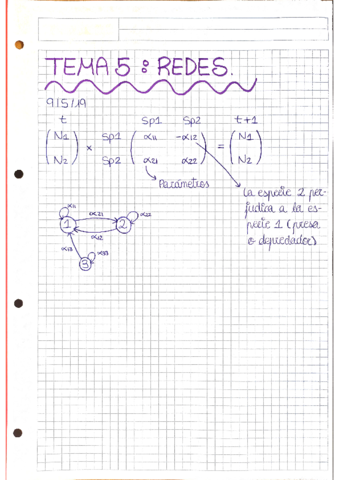 TEMA 5 : REDES.
9/5/19
t Sp1 Sp2 t+1
(N1 × Sp1 (α11 -α12) = (N1
N2) Sp2 (α21 α22) N2)
Parámetros
La especie 2 per-
judica a la es-
pecie 1 (presa
o depredador)
α11 α21 α22
1 2
α12
α13 α33
3